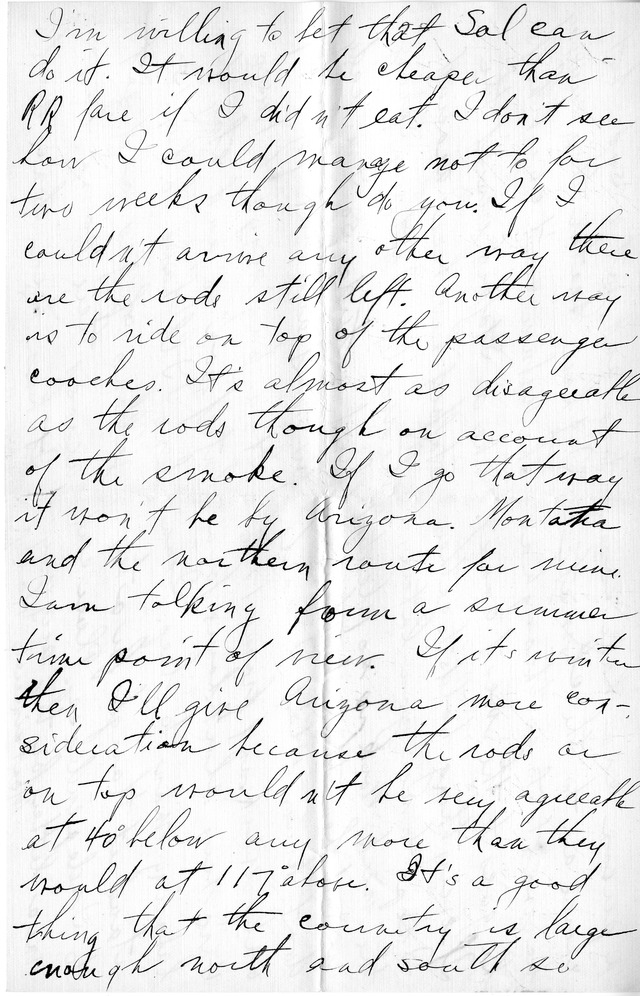 I'm willing to bet that Sal can
do it. It would be cheaper than
RR fare if I didn't eat. I don't see
how I could manage not to for
two weeks though do you. If I
couldn't arrive any other way there
are the rods still left. Another way
is to ride on top of the passenger
coaches. It's almost as disagreeable
as the rods though on account
of the smoke. If I go that way
it won't be by Arizona. Montana
and the northern route for mine.
I am talking from a summer
time point of view. If it's winter
then I'll give Arizona more con-
sideration because the rods or
on top wouldn't be very agreeable
at 40° below any more than they
would at 117° above. It's a good
thing that the country is large
enough north and south so